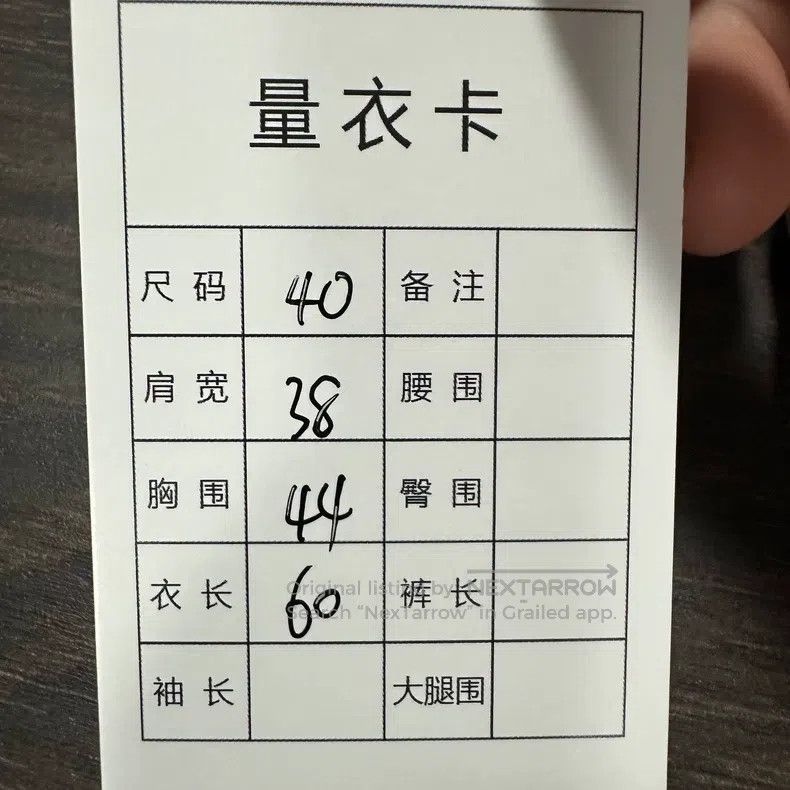 量衣卡
尺码 40 备注
肩宽 38 腰围
胸围 44 臀围
衣长 60 裤长
Original listing by NEXTARROW
Search "NexTarrow" in Grailed app.
袖长 大腿围